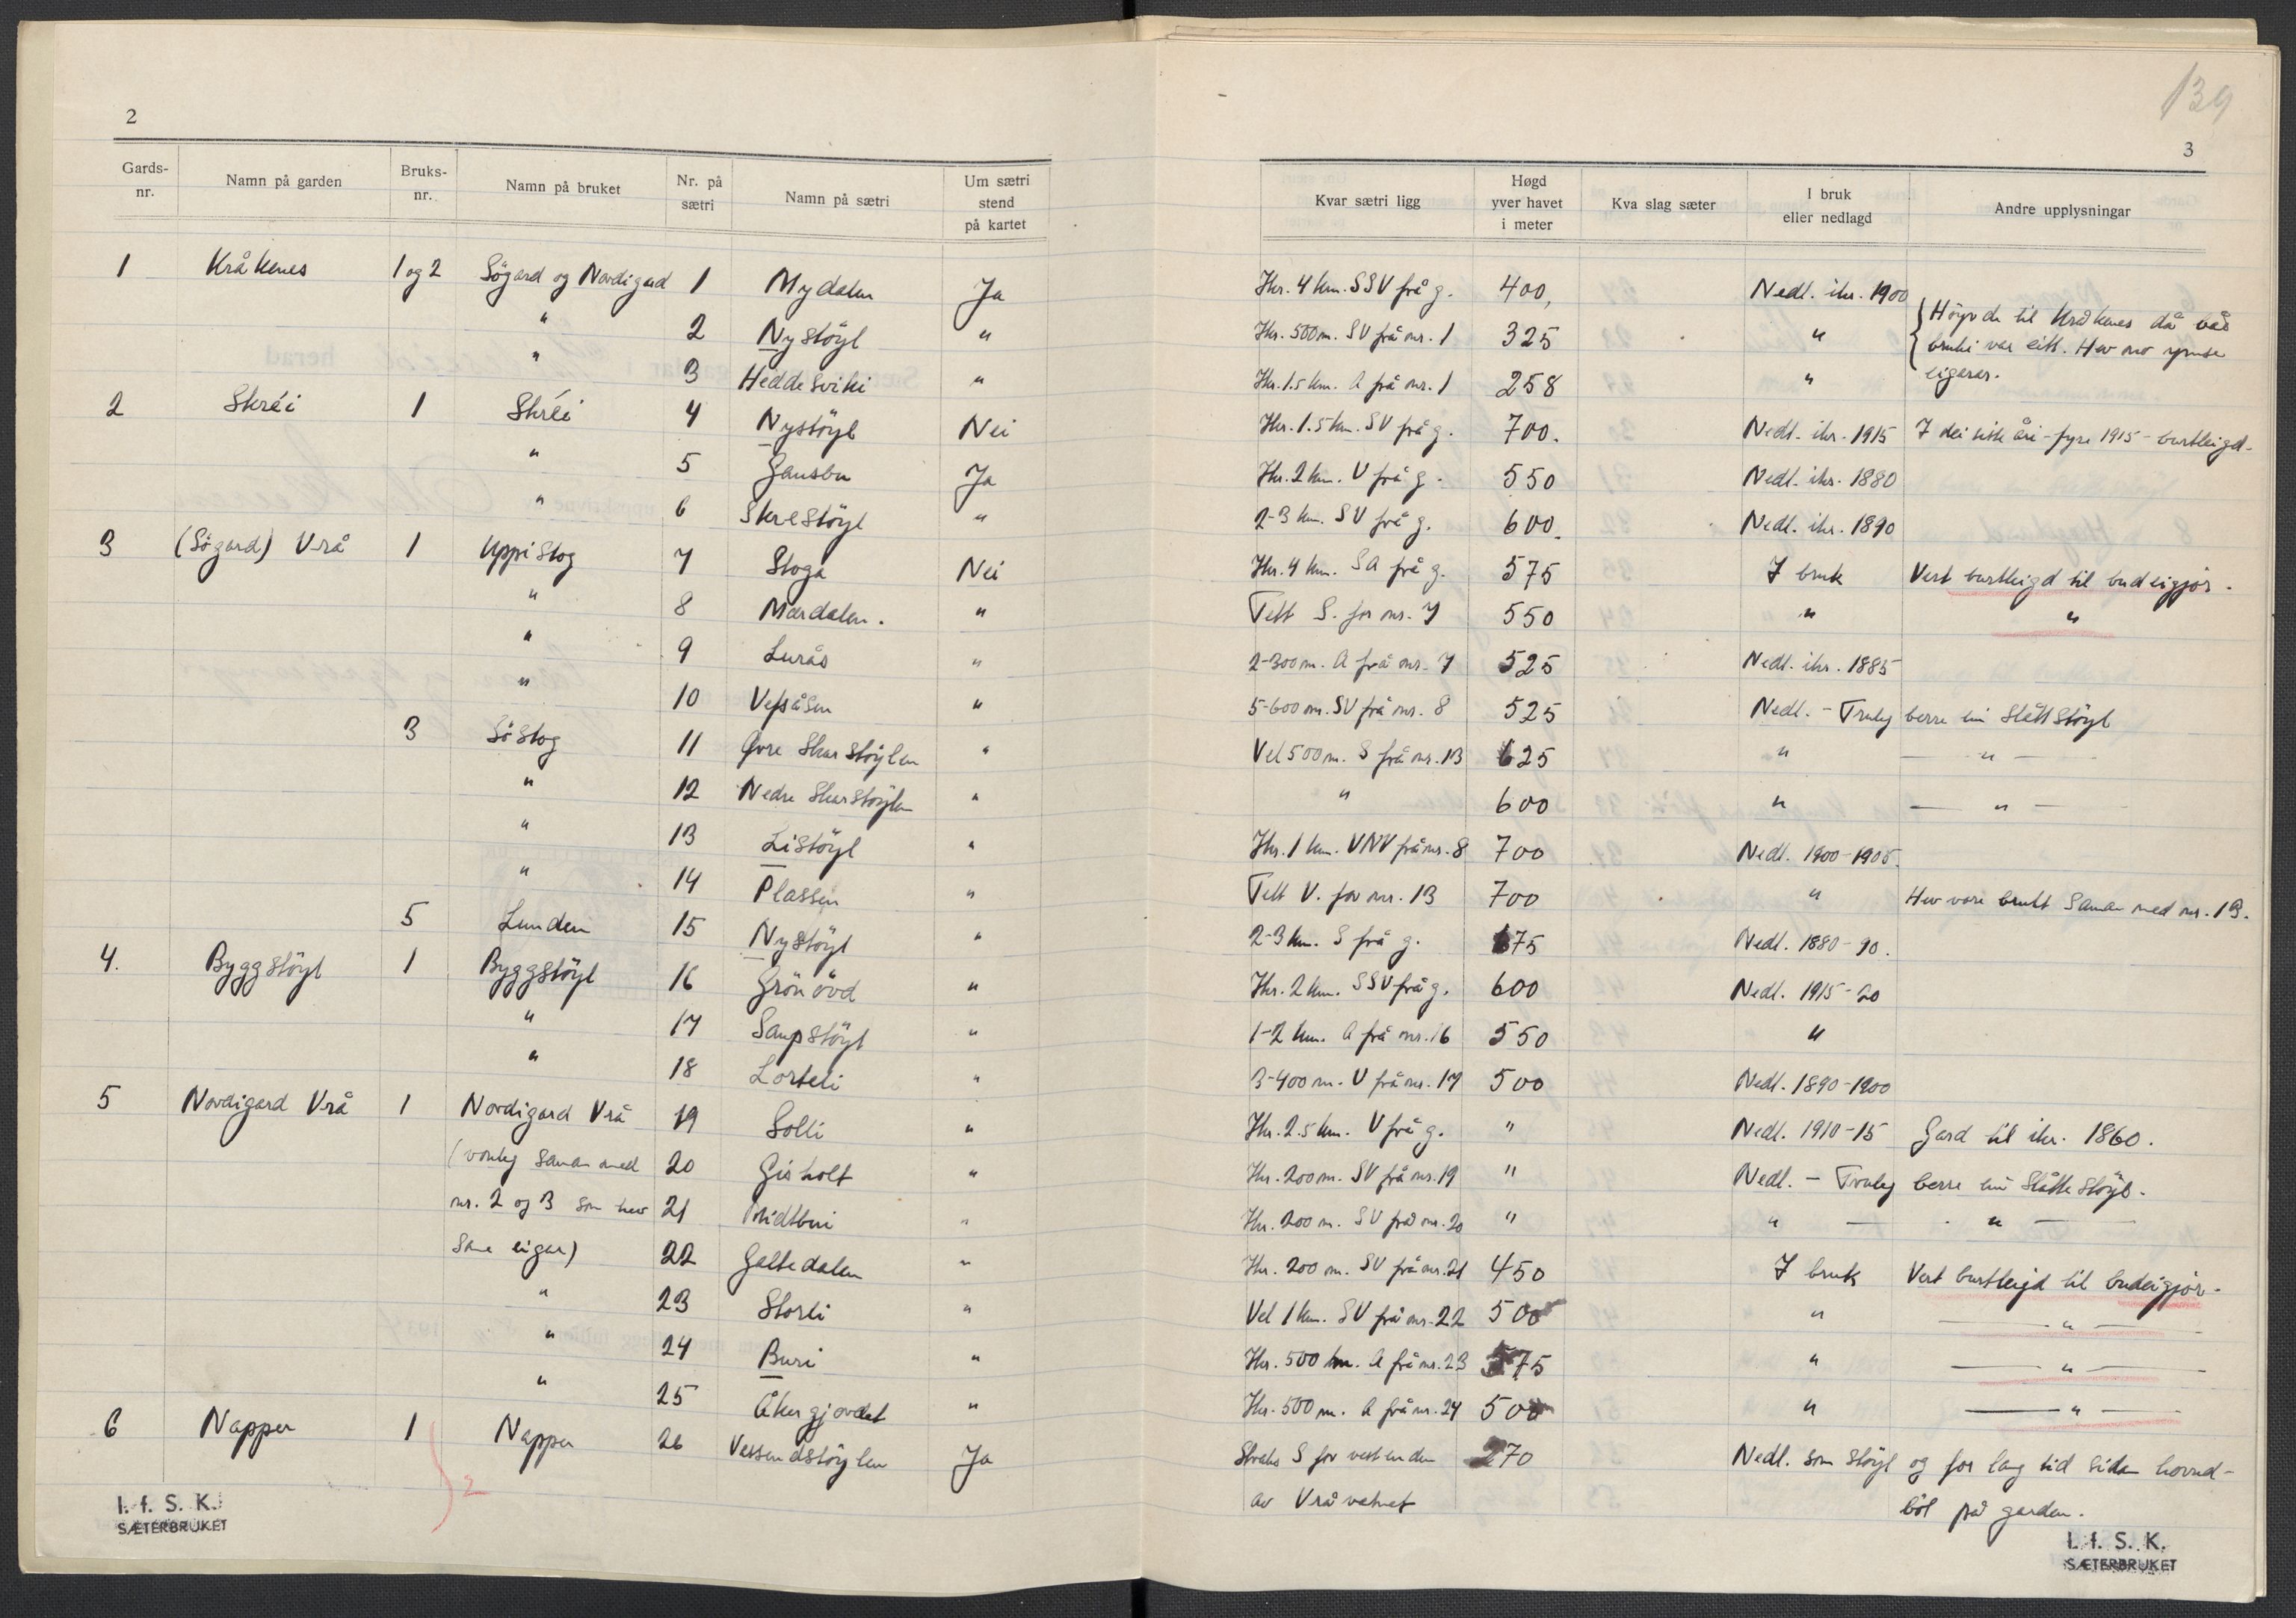 139
2
3
Gards-nr. Namn på garden Bruks-nr. Namn på bruket Nr. på sætri Namn på sætri Um sætri stend på kartet Kvar sætri ligg Høgd yver havet i meter Kva slag sæter I bruk eller nedlagd Andre upplysningar
1 Kråkenes 1 og 2 Sögard og Nordigard 1 Mydalen Ja Ikr. 4 km. SSV frå g. 400, Nedl. ikr. 1900
" 2 Nystöyl " Ikr. 500 m. SV frå nr. 1 325 " Höyrde til Kråkenes då båe
" 3 Heddesviki " Ikr. 1.5 km. A frå nr. 1 258 " bruki var eitt. Hev no ymse eigarar.
2 Skréi 1 Skréi 4 Nystöyl Nei Ikr. 1.5 km. SV frå g. 700. Nedl. ikr. 1915 I dei siste åri fyre 1915 - burtleigd.
" 5 Gausbu Ja Ikr. 2 km. V frå g. 550 Nedl. ikr. 1880
" 6 Skrestöyl " 2-3 km. SV frå g. 600. Nedl. ikr. 1890
3 (Sögard) Vrå 1 Uppistog 7 Stoga Nei Ikr. 4 km. SA frå g. 575 I bruk Vert burtleigd til budeigjor.
" 8 Mærdalen. " Tett S. for nr. 7 550 " "
" 9 Lurås " 2-300 m. A frå nr. 7 525 Nedl. ikr. 1885
" 10 Vefsåsen " 5-600 m. SV frå nr. 8 525 Nedl. - Truleg berre ein Slåttstöyl
3 Söstog 11 Øvre Skarstöylen " Vel 500 m. S frå nr. 13 625 " - " -
" 12 Nedre Skarstöylen " " 600 " - " -
" 13 Listöyl " Ikr. 1 km. VNV frå nr. 8 700 Nedl. 1900-1905.
" 14 Plassen " Tett V. for nr. 13 700 " Hev vore brukt saman med nr. 13.
5 Lunden 15 Nystöyl " 2-3 km. S frå g. 675 Nedl. 1880-90.
4. Byggstöyl 1 Byggstöyl 16 Grönövd " Ikr. 2 km. SSV frå g. 600 Nedl. 1915-20
" 17 Saupstöyl " 1-2 km. A frå nr. 16 550 "
" 18 Lorteli " 3-400 m. V frå nr. 17 500 Nedl. 1890-1900
5 Nordigard Vrå 1 Nordigard Vrå 19 Solli " Ikr. 2.5 km. V frå g. " Nedl. 1910-15 Gard til ikr. 1860.
(vonleg saman med 20 Gisholt " Ikr. 200 m. SV frå nr. 19 " Nedl. - Truleg berre ein Slåttestöyl.
nr. 2 og 3 som hev 21 Midtbui " Ikr. 200 m. SV frå nr. 20 " " - " -
same eigar) 22 Galtedalen " Ikr. 200 m. SV frå nr. 21 450 I bruk Vert burtleigd til budeigjor.
" 23 Storli " Vel 1 km. SV frå nr. 22 500 " - " -
" 24 Buri " Ikr. 500 m. A frå nr. 23 575 " - " -
" 25 Åkergjordet " Ikr. 500 m. A frå nr. 24 500 " - " -
6 Napper 1 Napper 26 Vessendstöylen Ja Straks S for vestenden 270 Nedl. som stöyl og for lang tid sidan hovud-
2 av Vråvatnet böl på garden.
I. f. S. K.
SÆTERBRUKET
I. f. S. K.
SÆTERBRUKET